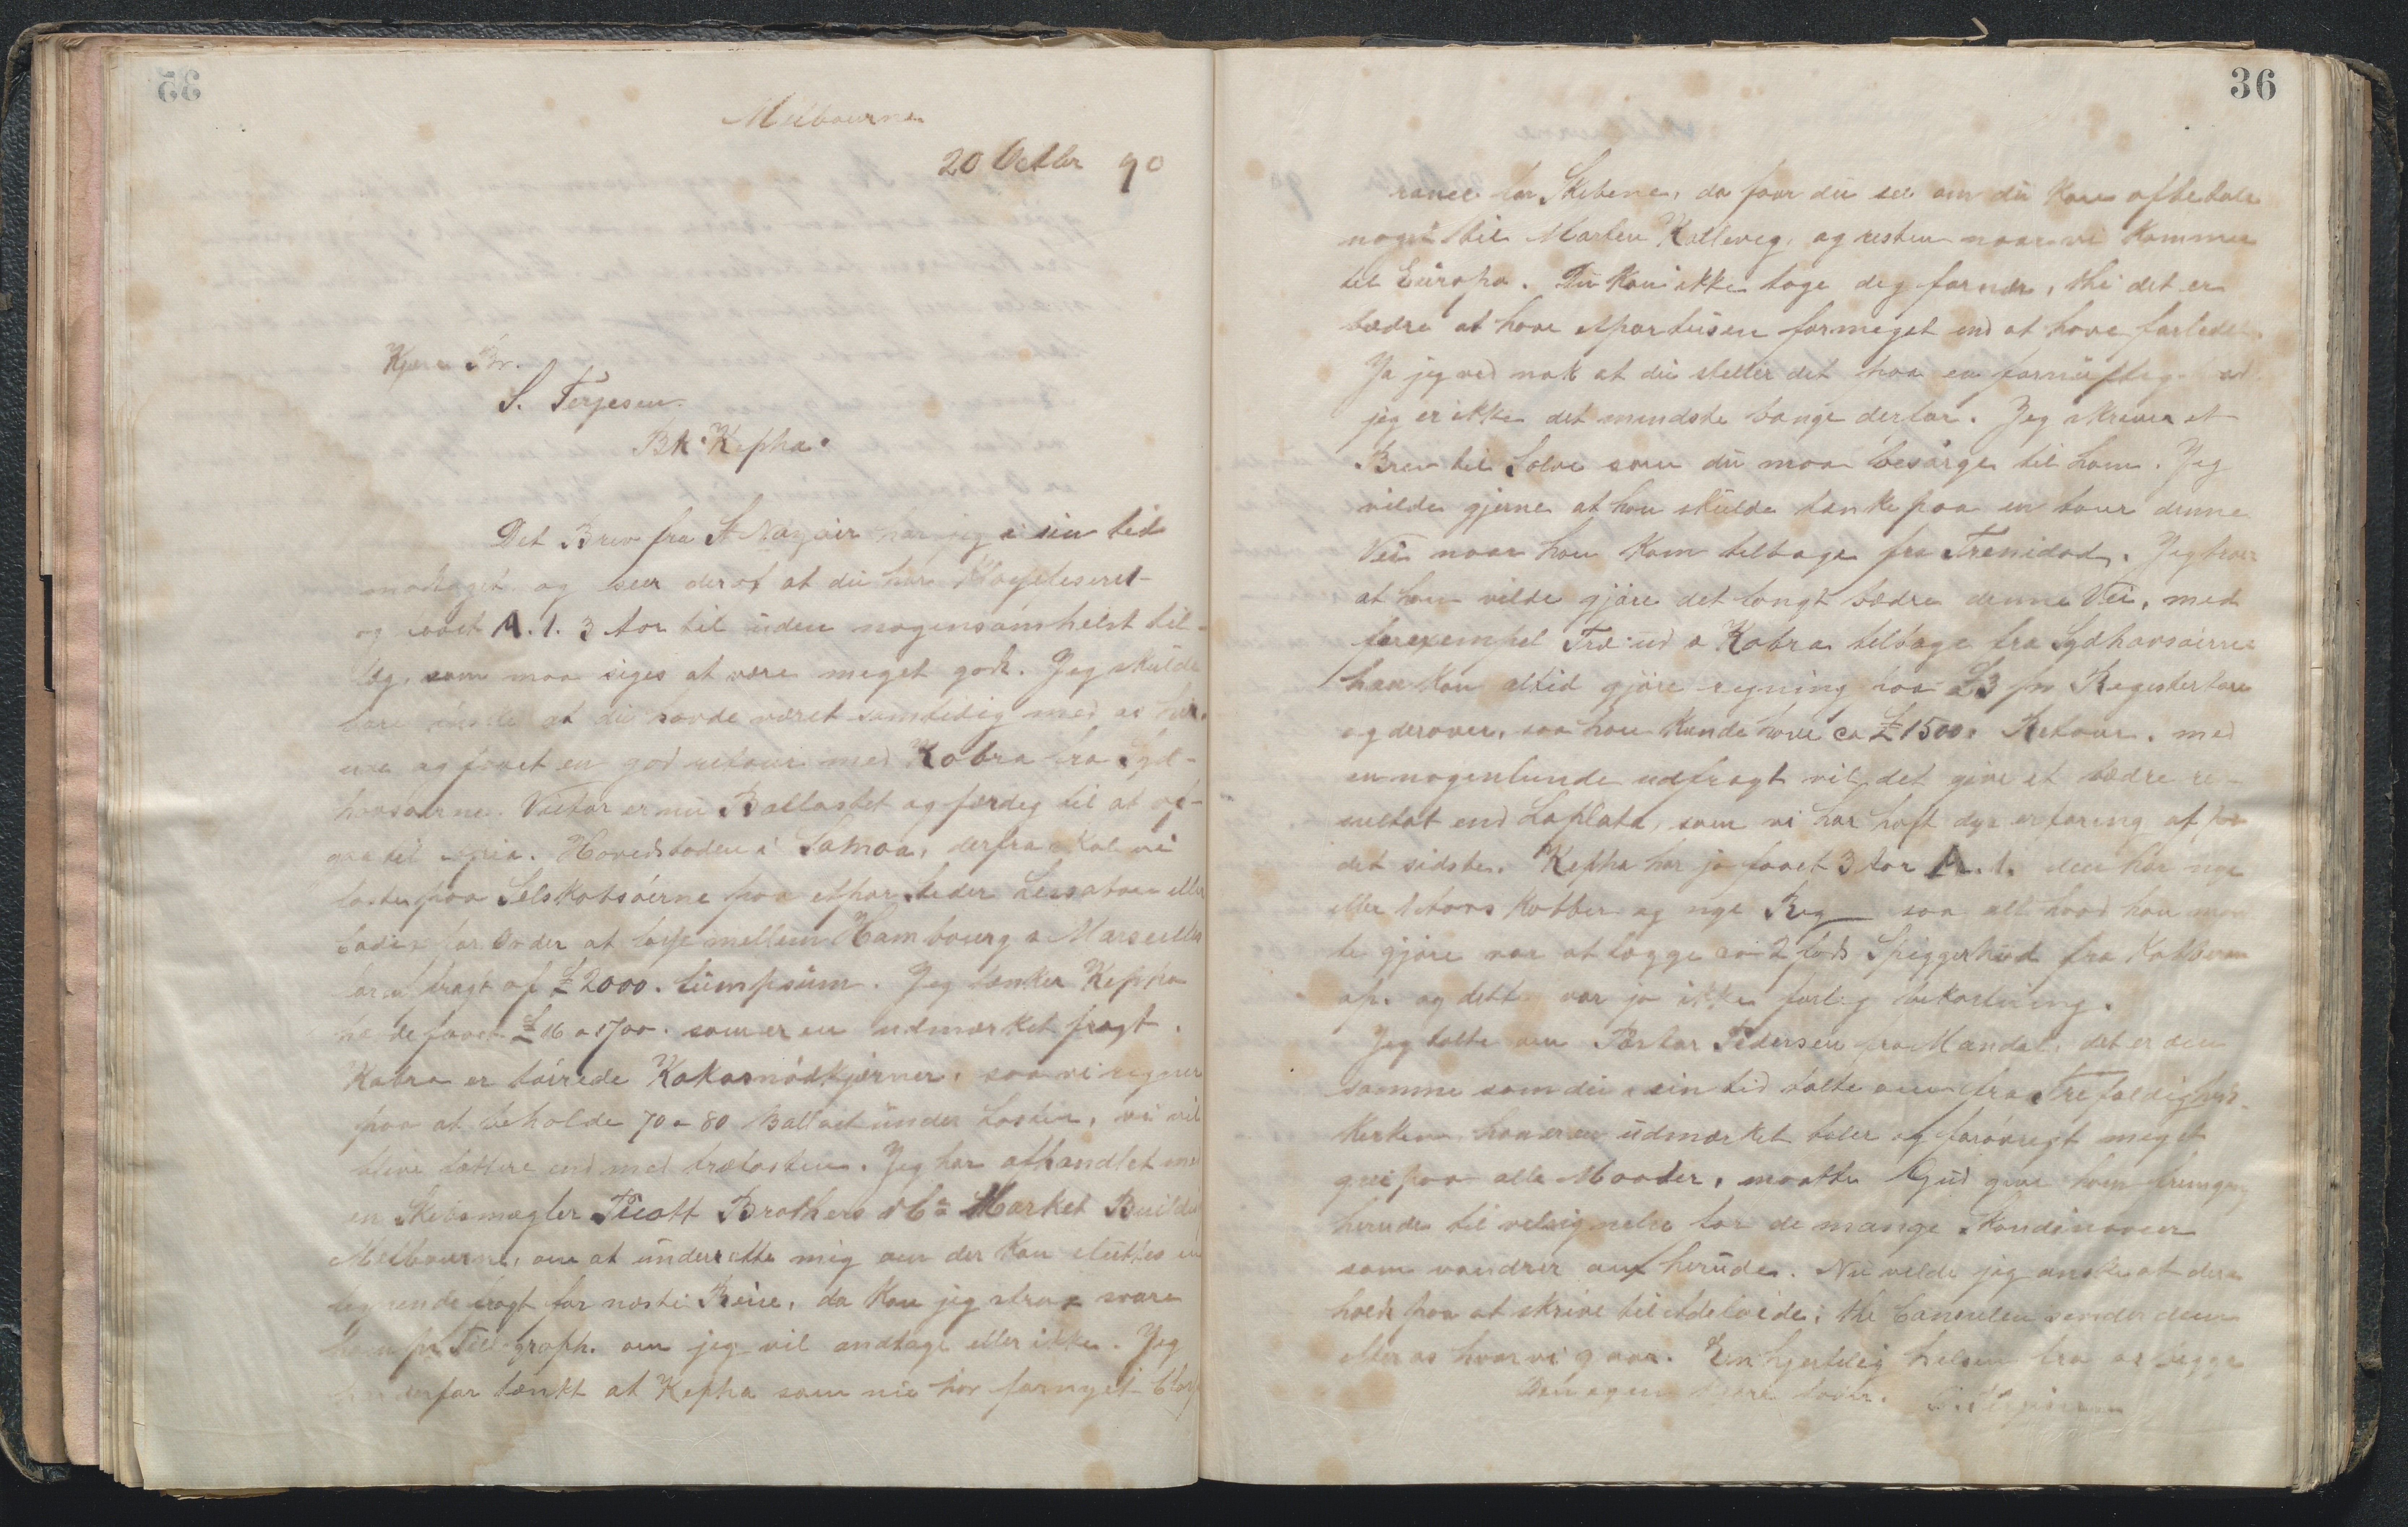 35
Melbourne
20 Octbr 90
Kjære Br.
S. Terjesen
Bk. Kepha.
Det Brev fra St Nazair har jeg i sin tid
modtaget og seer deraf at du har Klassificeret
og faaet A. 1. 3 Aar til uden nogensomhelst til-
læg, som maa siges at være meget godt. Jeg skulde
bare at du havde været samtidig med os her-
ude og faaet en god retour med Kobra fra Syd-
havsøerne. Victor er nu Ballastet og færdig til at af-
gaa til Apia. Hovedstaden i Samoa, derfra skal vi
laste paa Selskabsøerne paa et par steder eller
Cadix for Order at losse mellem Hambourg & Marseille
for en fragt af £2000. lumpsum. Jeg tænker Kepha
havde faaet £16 a 1700. som er en udmærket fragt.
Kobra er tørrede Kokosnödkjærner, saa vi regner
paa at beholde 70 a 80 Ballast under Lasten, vi vil
blive lettere end med trælasten. Jeg har afhandlet med
en Skibsmægler Scott Brothers 16 Market Buildi
Melbourne, om at underrette mig om der kan sluttes en
lignende fragt for næste Reise, da kan jeg strax svare
ham pr Telegraph. om jeg vil andtage eller ikke. Jeg
har derfor tænkt at Kepha som nu har fornyet Clas
36
for Skibene, da faar du see om du kan afbetale
noget til Marten Kalleveg, og resten naar vi kommer
til Europa. Du kan ikke tage deg for nær, thi det er
bædre at have Apartusen formeget end at have forledet.
Ja jeg ved nok at du steller det paa en fornüftig
jeg er ikke det mindste bange derfor. Jeg skriver et
Brev til Salve som du maa besørge til ham. Jeg
vilde gjerne at han skulde tænke paa en tour denne
Vei naar han kom tilbage fra Trenidad. Jeg tror
at han vilde gjöre det langt bædre denne Vei, med
forexempel Træ ud a Kobra tilbage fra Sydhavsøerne
han kan altid gjöre regning paa £3 pr Registertons
og derover, saa han kunde have ca £1500. Retour. med
en nogenlunde udfragt vil det give et bædre re-
sultat end Laplata, som vi har haft dyr erfaring af paa
det sidste. Kepha har jo faaet 3 Aar A. 1. den har nye
eller 1 Aars Kobber og nye Rig saa alt hvad han maa
te gjöre var at lægge en 2 fods Spiggerhud fra Kobberen
op. og dette var jo ikke farlig bekostning.
Jeg talte om Pastor Pedersen fra Mandal, det er den
samme som du i sin tid talte om fra Trefoldigheds-
kirken, han er en udmærket taler og forøvrigt meget
grei paa alle Maader, maatte Gud give ham fremgang
herude til velsignelse for de mange Skandinaver
som vandrer om herude. Nu vilde jeg ønske at dere
holdt paa at skrive til Adelaide; thi Consulen sender dem
efter os hvor vi gaar. En hjertelig helsen fra os begge
Din egen kjære broder.